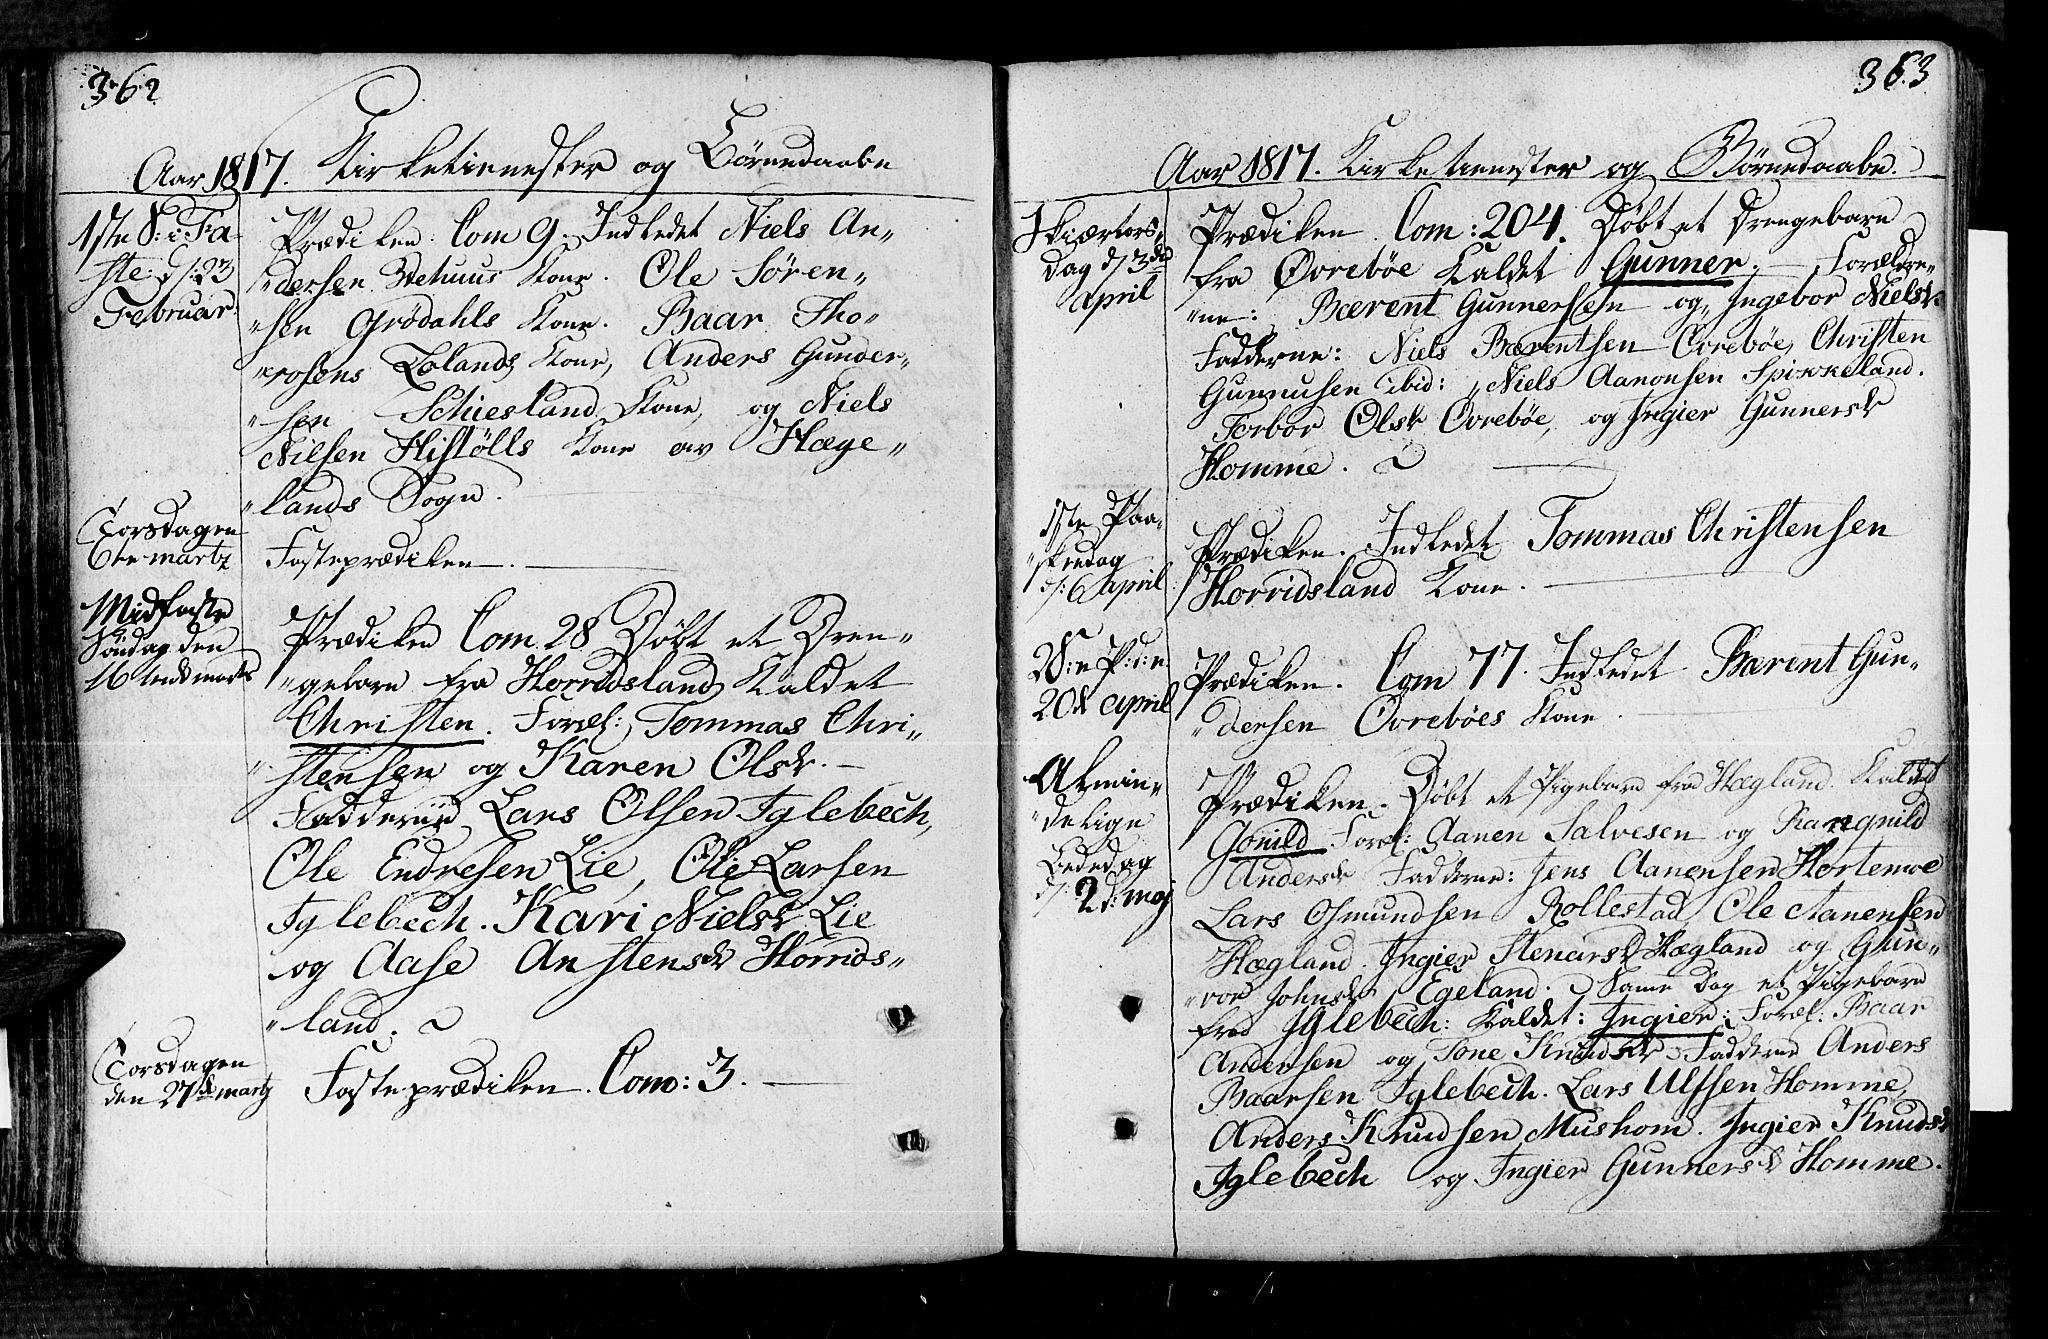 362
Aar 1817. Kirketienester og Börnedaabe
1ste S: i Fa-
ste: d: 23
Februar.
Prædiken. Com 9. Indledet Niels An„
„dersen Kone. Ole Sören„
„sen Grödahls Kone. Baar Tho„
„rosens Lolands Kone, Anders Gunder„
„sen Schiesland Kone, og Niels
Nilsen Histölls Kone av Hæge„
„lands Sogn.
Torsdagen
6te martz
Fasteprædiken.
Midfaste
Söndag den
16
Prædiken Com. 28 Döbt et Dren„
„gebarn fra Horridsland Kaldet
Christen. Foræl: Tommas Chri„
„stensen og Karen Olsd.
Fadderne Lars Olsen Iglebech,
Ole Endresen Lie, Ole Larsen
Iglebech. Kari Nielsd Lie
og Aase Anstensd Horrids„
„land.
Torsdagen
den 27de martz
Fasteprædiken. Com: 3.
363
Aar 1817. Kirketienester og Börnedaabe.
Skiærtors„
dag d: 3de
April
Prædiken. Com: 204. Döbt et Drengebarn
fra Övreböe Kaldet Gunner. Forældre„
„ne: Bærent Gunnersen og Ingebor Nielsd.
Fadderne: Niels Bærentsen Övreböe, Christen
Gunnusen ibid: Niels Aanonsen
Torbor Olsd Övreböe, og Ingier Gunnersd
Homme.
1ste Paa„
„skedag
d: 6 April
Prædiken. Indledet Tommas Christensen
Horridsland Kone.
2 S: e P:
20de April
Prædiken. Com 77. Indledet Bærent Gun„
„dersen Övreböes Kone.
Almin„
„delige
Bededag
d: 2d: maj
Prædiken. Döbt et Pigebarn fra Hægland. Kaldet
Gonild Foræl: Aanen Salvesen og Rangnild
Andersd Fadderne: Jens Aanensen Hortemoe
Lars Osmundsen Rollestad Ole Aanensen
Hægland. Ingier Stenarsd Hægland og Gun„
„vor Johnsd Egeland. Same Dag et Pigebarn
fra Iglebech: Kaldet: Ingier: Foræl: Baar
Andersen og Tone Knudsd Fadderne Anders
Baarsen Iglebech. Lars Ulfsen Homme,
Anders Knudsen Mushom. Ingier Knudsd
Iglebech og Ingier Gunnersd Homme.